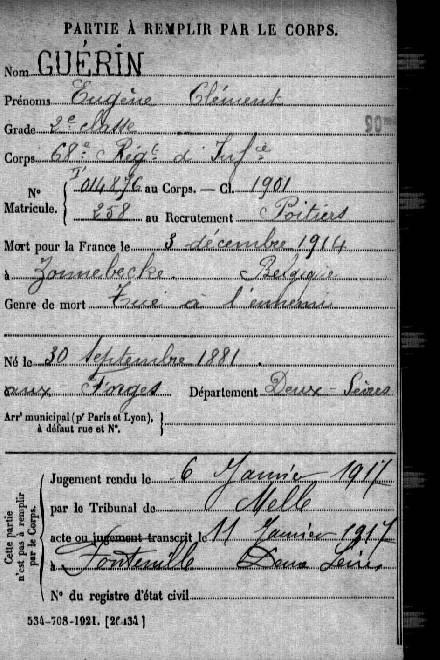 PARTIE À REMPLIR PAR LE CORPS.
Nom GUÉRIN
Prénoms Eugène Clément
Grade 2e classe
Corps 68e Régt d'Infie
No Matricule. 014876 au Corps. — Cl. 1901
258 au Recrutement Poitiers
Mort pour la France le 3 décembre 1914
à Zonnebecke. Belgique
Genre de mort Tué à l'ennemi
Né le 30 Septembre 1881.
aux Forges Département Deux-Sèvres
Arrt municipal (pr Paris et Lyon),
à défaut rue et No.
Cette partie n'est pas à remplir par le Corps.
Jugement rendu le 6 Janvier 1917
par le Tribunal de Melle
acte ou jugement transcrit le 11 Janvier 1917
à Fontenille Deux Sèvres
No du registre d'état civil
534-708-1921. [26434]